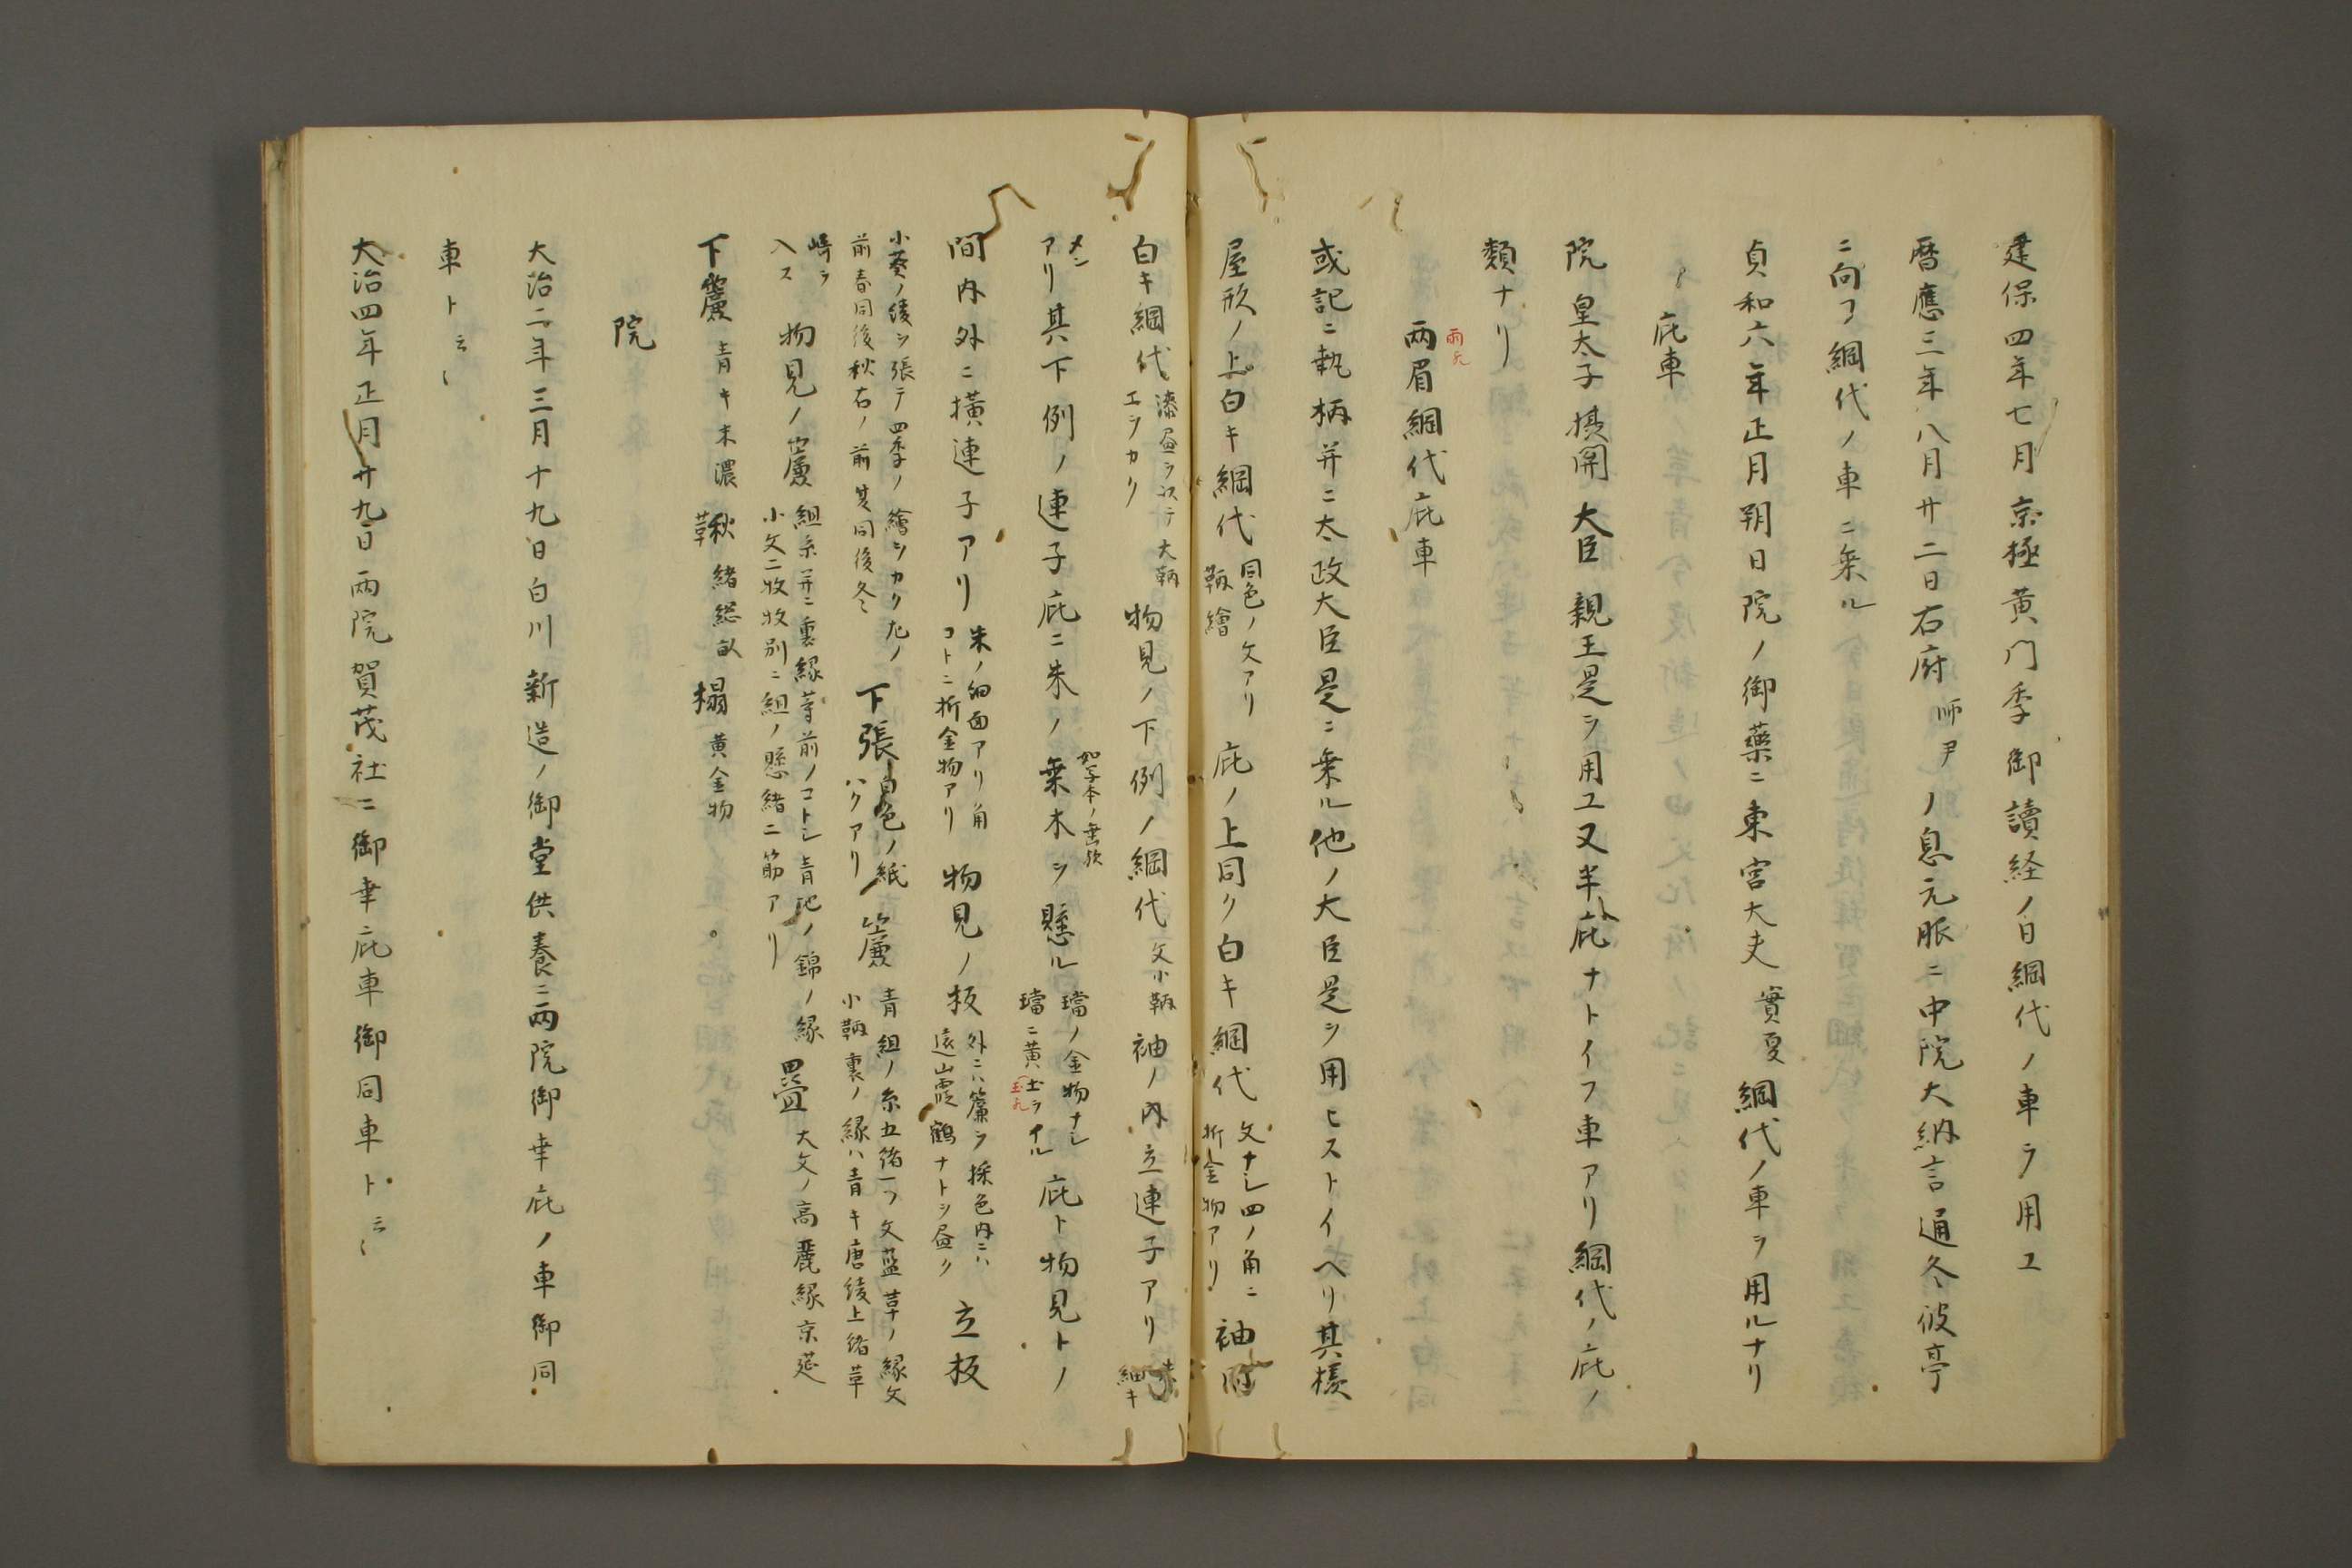 建保四年七月京極黄門季御讀経ノ日網代ノ車ヲ用ユ
暦應三年八月廿二日右府師尹ノ息元服ニ中院大納言通冬彼亭
ニ向フ網代ノ車ニ乗ル
貞和六年正月朔日院ノ御藥ニ東宮大夫實夏網代ノ車ヲ用ルナリ
庇車
院 皇太子 摂関 大臣 親王是ヲ用ユ又半庇ナトイフ車アリ網代ノ庇ノ
類ナリ
両眉網代庇車
或記ニ執柄并ニ太政大臣是ニ乗ル他ノ大臣是ヲ用ヒストイヘリ其様
屋形ノ上白キ網代
同色ノ文アリ
鞆繪
庇ノ上同ク白キ網代
文ナシ四ノ角ニ
折金物アリ
袖
白キ網代
エラカク
大鞆
物見ノ下例ノ網代
文小鞆
袖ノ内立連子アリ
細キ
アリ其下例ノ連子庇ニ朱ノ乗木ヲ懸ル
璫ノ金物ナシ
璫ニ黄土ヲイル
庇ト物見トノ
間内外ニ横連子アリ
朱ノ細面アリ角
コトニ折金物アリ
物見ノ板
外ニハ簾ヲ採色内ニハ
遠山霞鶴ナトヲ昼ク
立板
小葵ノ綾ヲ張テ四季ノ繪ヲカク左ノ
前春同後秋右ノ前夏同後冬
下張
白色ノ紙
ハクアリ
簾
青組ノ糸五緒一ツ文藍革ノ縁文
小鞆裏ノ縁ハ青キ唐綾上緒革
入ス
物見ノ簾
組糸并ニ裏縁等前ノコトシ青地ノ錦ノ縁
小文二牧牧別ニ組ノ懸緒二筋アリ
畳
大文ノ高麗縁京莚
下簾
青キ末濃
鞦
緒総
榻
黄金物
院
大治二年三月十九日白川新造ノ御堂供養ニ両院御幸庇ノ車御同
車ト云〻
大治四年正月廿九日両院賀茂社ニ御幸庇車御同車ト云〻